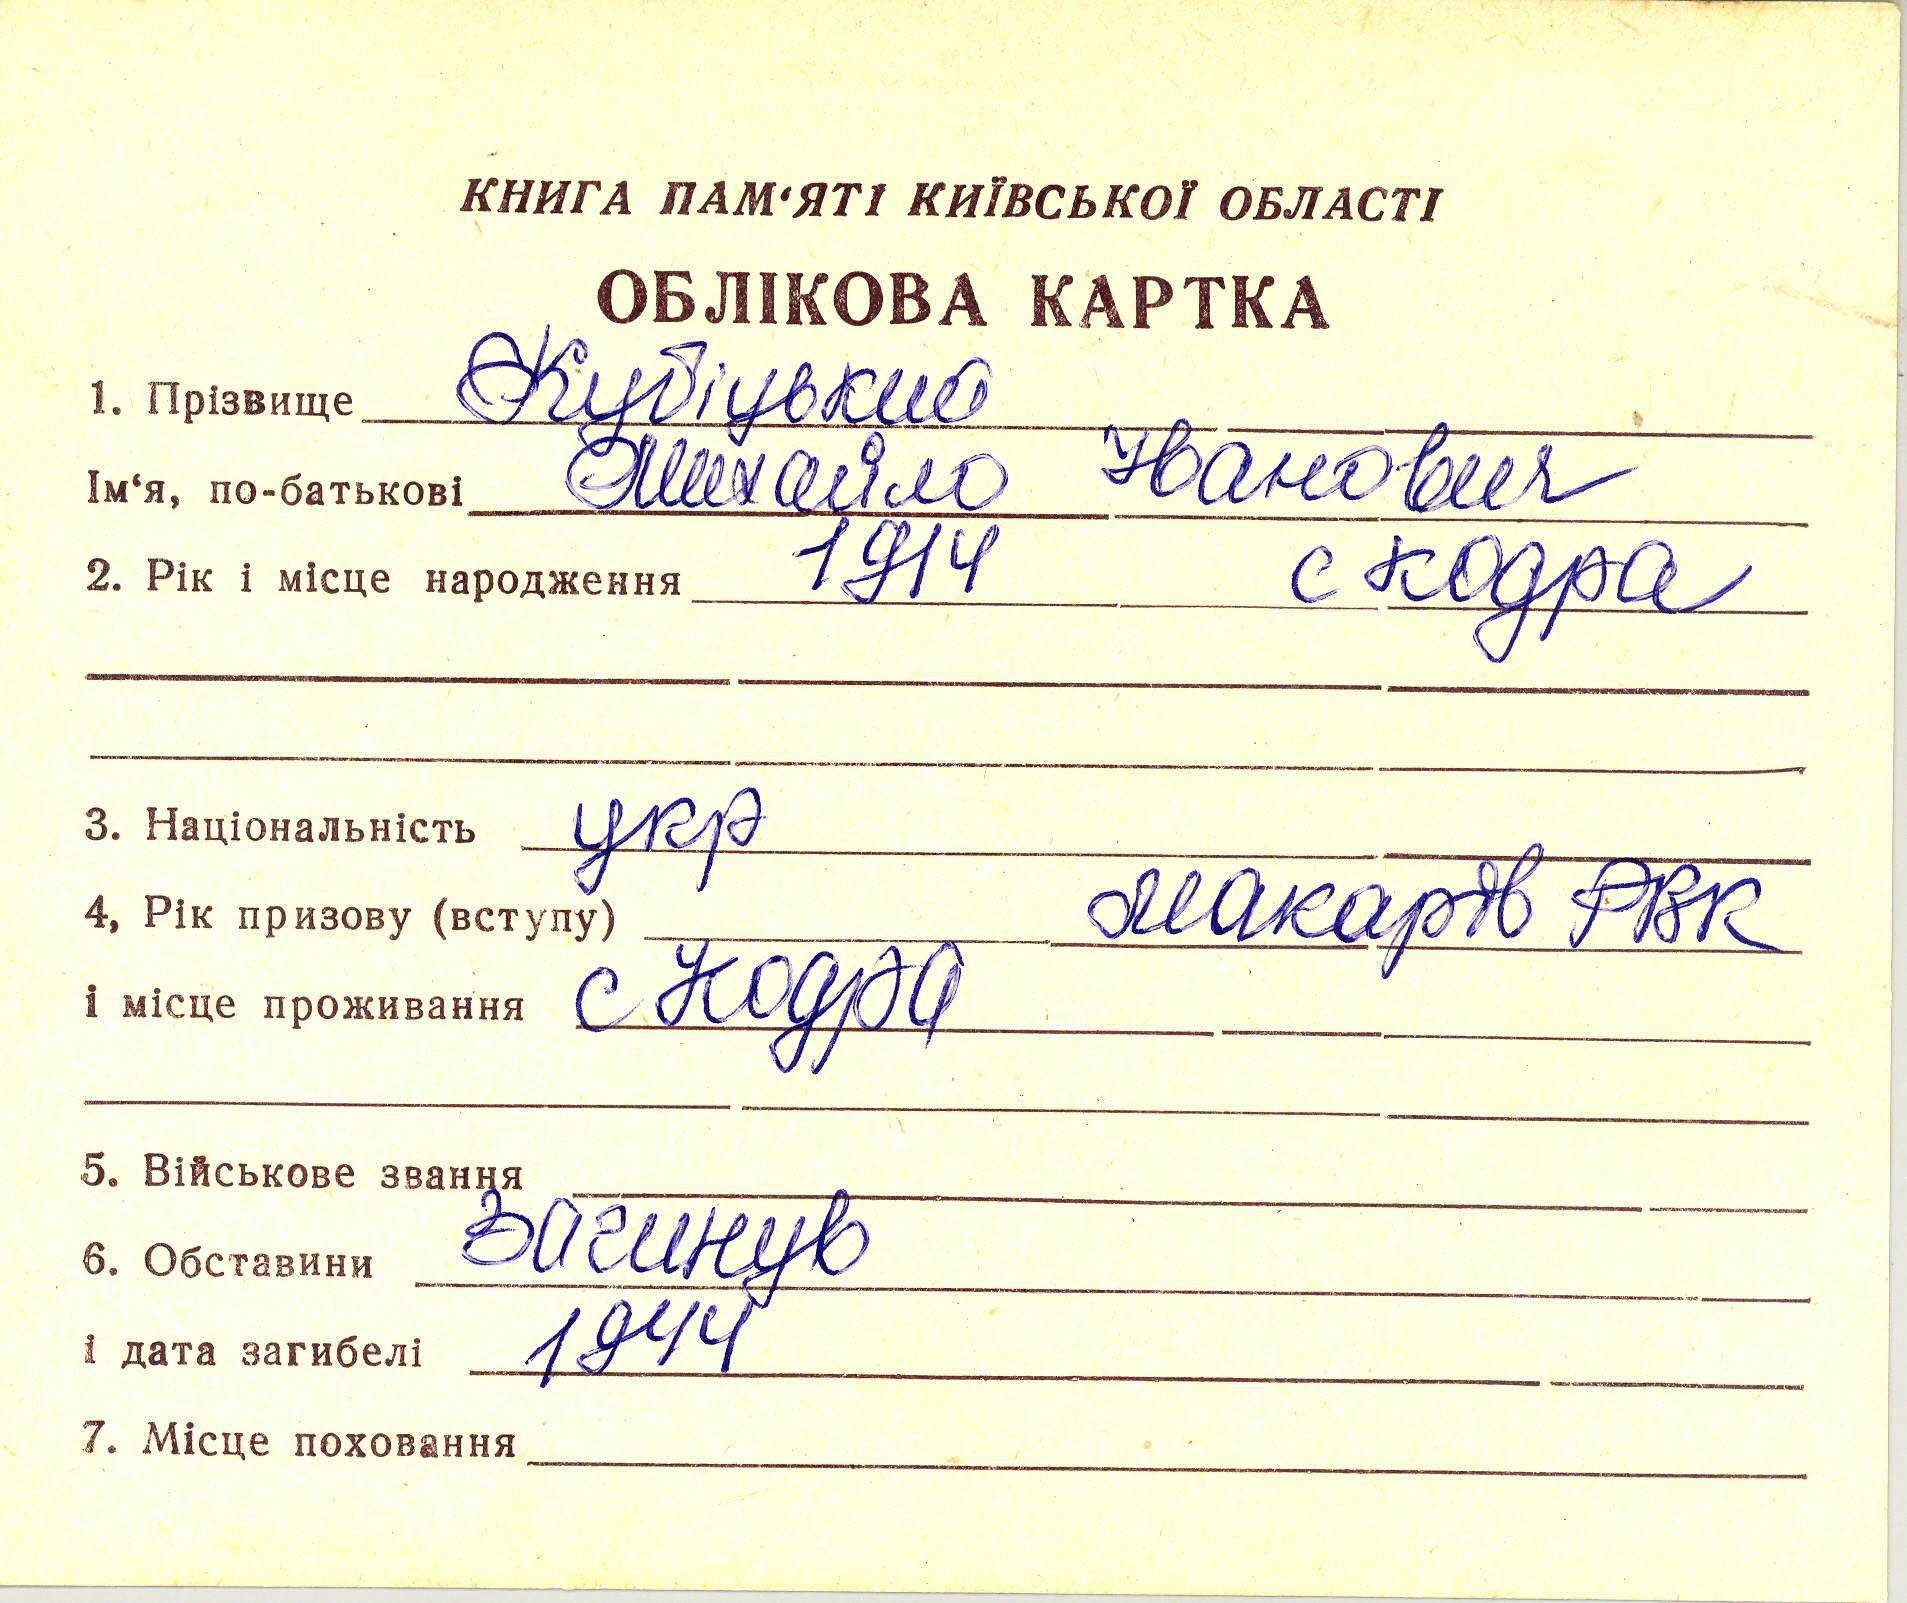 КНИГА ПАМ‘ЯТІ КИЇВСЬКОЇ ОБЛАСТІ
ОБЛІКОВА КАРТКА
1. Прізвище Кубіцький
Ім‘я, по-батькові Михайло Іванович
2. Рік і місце народження 1914 с Кодра
3. Національність укр
4, Рік призову (вступу) Макарів РВК
і місце проживання с Кодра
5. Військове звання
6. Обставини Загинув
і дата загибелі 1944
7. Місце поховання